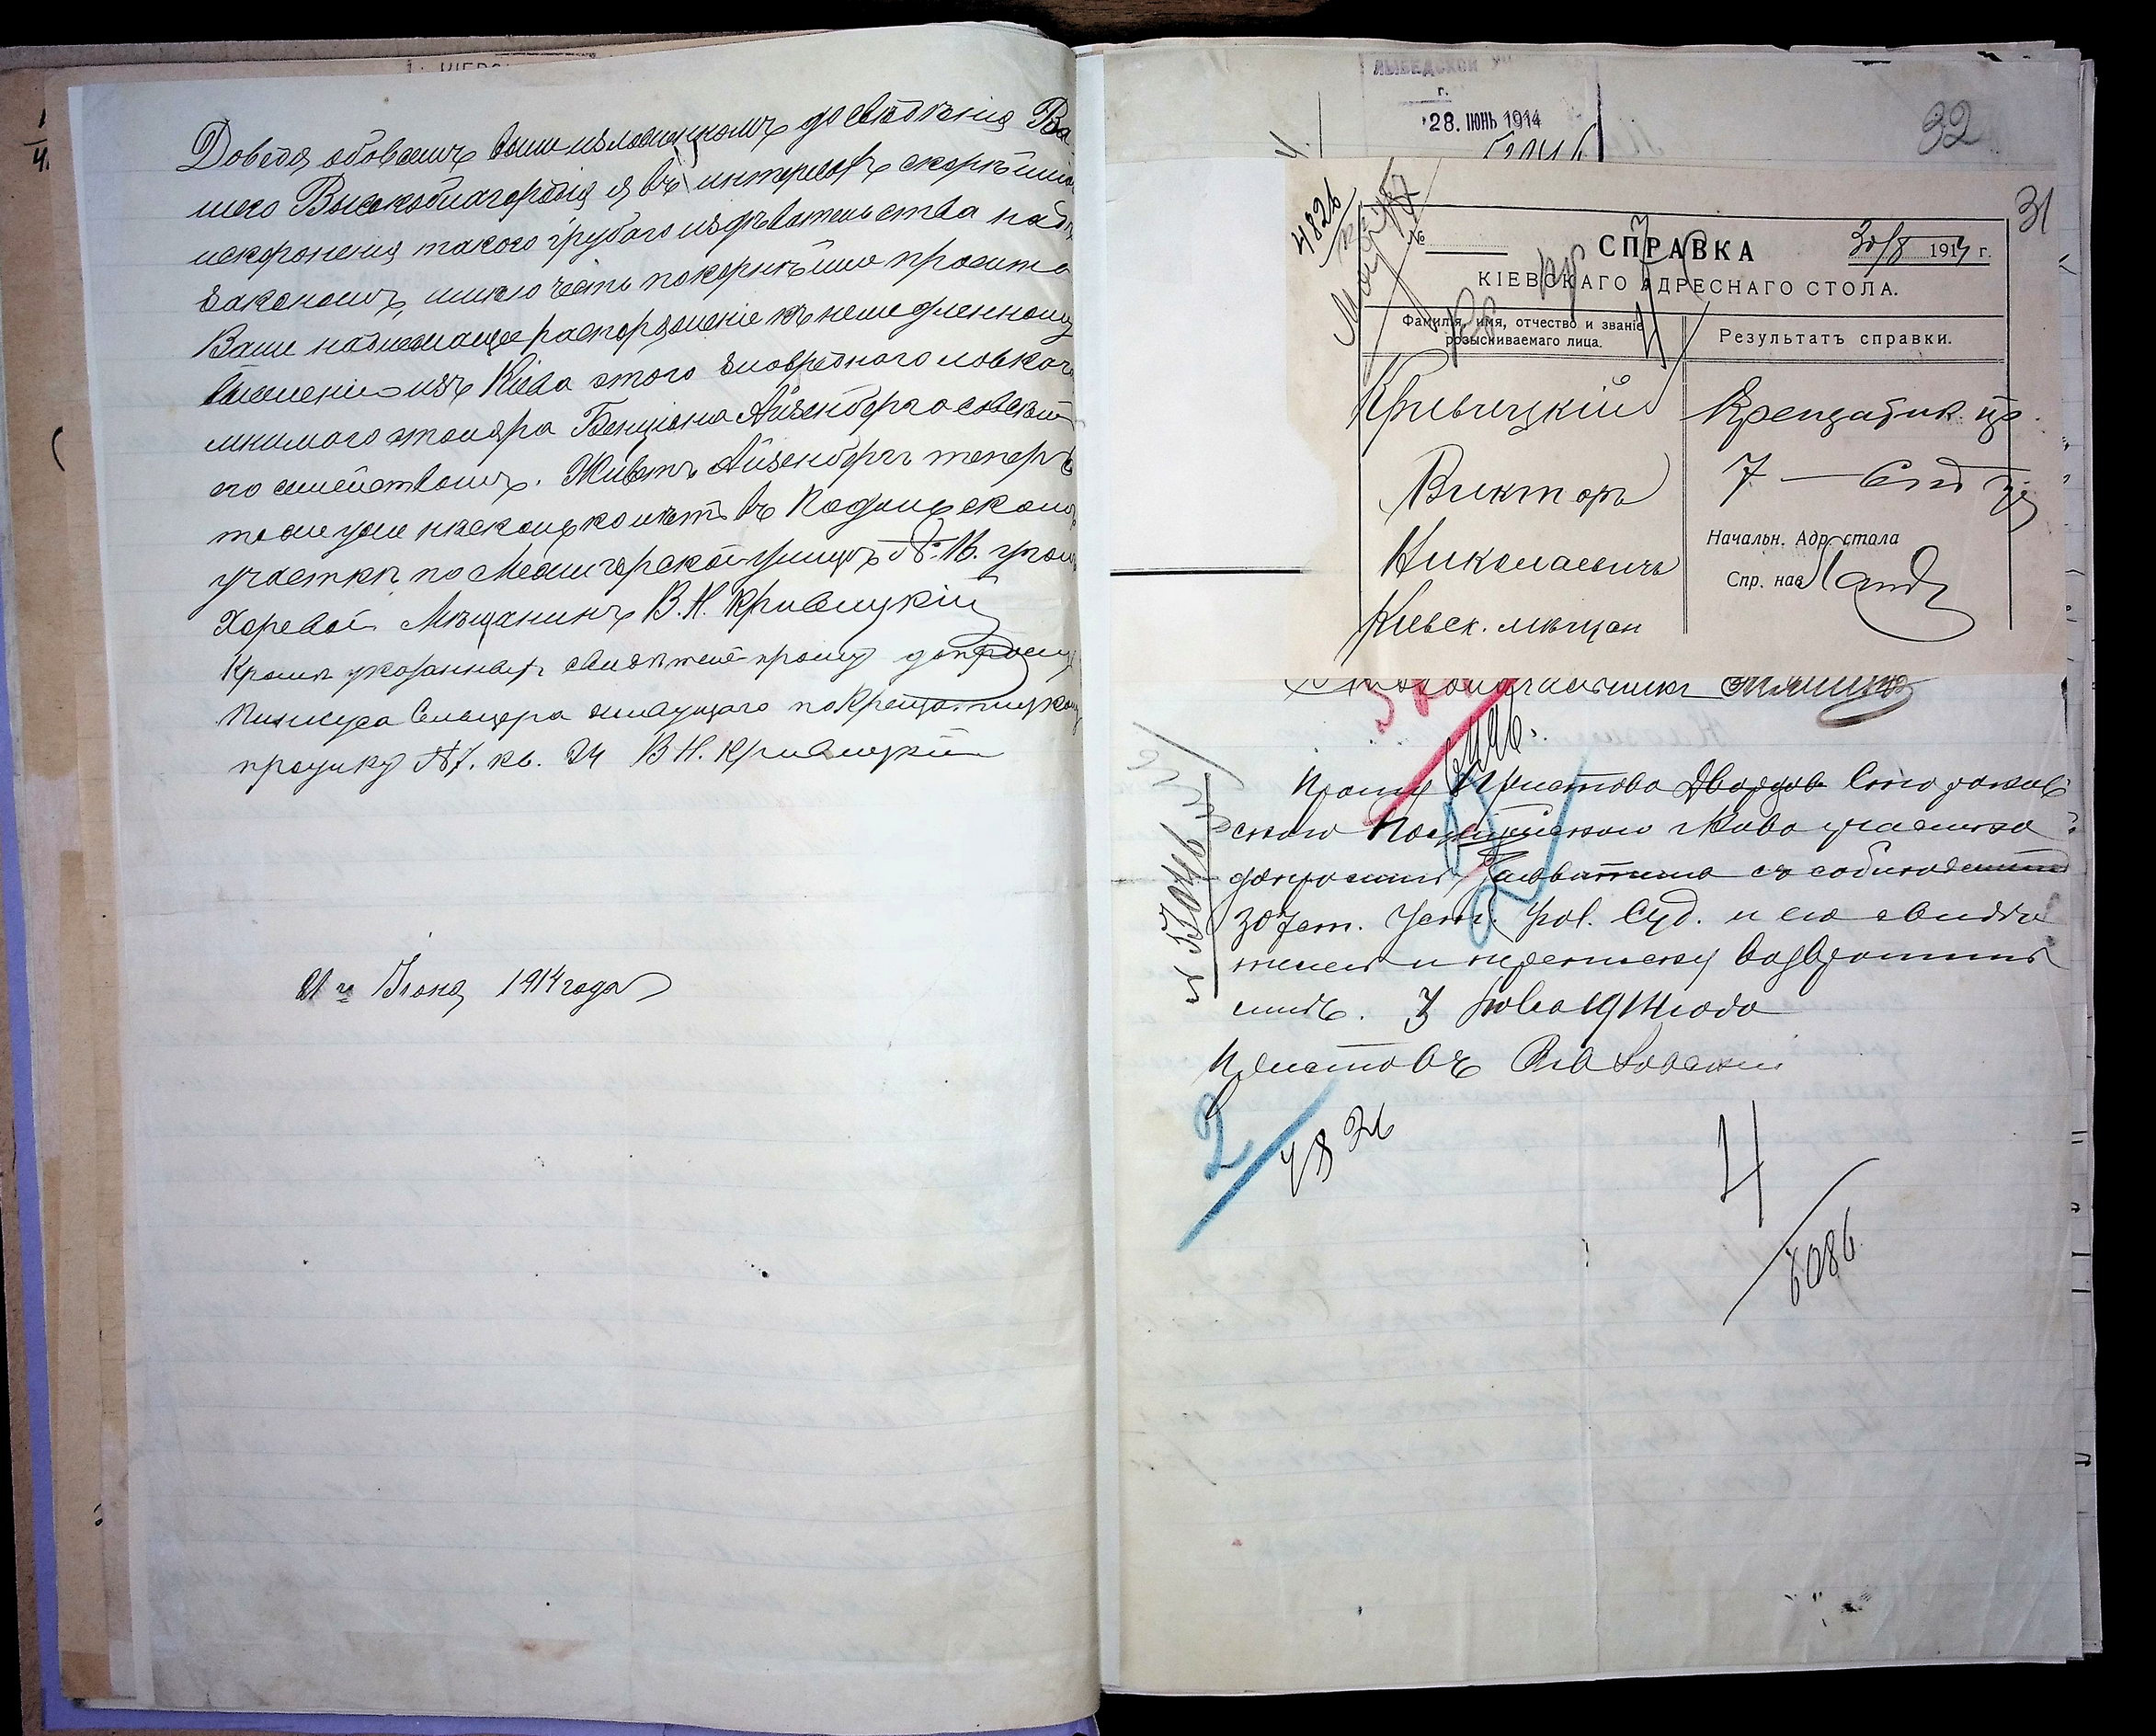 Доводя обо всемъ вышеизложенномъ до свѣдѣнія Ва-
шего Высокоблагородія я въ интересахъ скорѣйшаго
искорененія такого грубаго издѣвательства надъ
закономъ, имѣю честь покорнѣйше просить
Ваше надлежащее распоряженіе къ немедленному
выселенію изъ Кіева этого зловреднаго ловкача
мнимаго столяра Бенціона Айзенберга со всѣмъ
его семействомъ. Живетъ Айзенбергъ теперь
тоже уже нѣсколько лѣтъ въ Подольскомъ
участкѣ по Межигорской улицѣ № 16. уголъ
Хоревой. Мѣщанинъ В. Н. Кривицкій
Кромѣ указанныхъ свидѣтелей прошу допросить
Пинкуса Сельцера живущаго по Крещатицкому
проулку №7. кв. 24 В Н. Кривицкій
21 го Іюня 1914 года
ЛЫБЕДСКОЙ
г.
28. ІЮНЬ 1914
32
31
4826
№
СПРАВКА
30/8 1914 г.
КІЕВСКАГО АДРЕСНАГО СТОЛА.
Фамилія, имя, отчество и званіе
розыскиваемаго лица.
Результатъ справки.
Кривицкій
Викторъ
Николаевичъ
Кіевск. мѣщан
Крещатик. пр.
7
Начальн. Адр. стола
Спр. нав.
Прошу Пристава Дворцов Старокіев
скаго Полицейскаго участка
допросить заявителя съ соблюденіемъ
307 ст. Уст. Уг. Суд. и его свидѣ
телей и переписку возвратить
мнѣ. 3 Іюля 1914 года
Приставъ
2
4826
4
6086